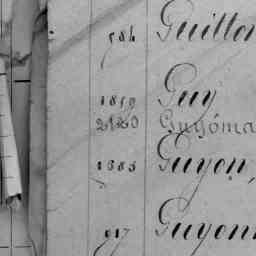 584 Guillon
1859 Guy
2120 Guyoma
1685 Guyon,
917 Guyon